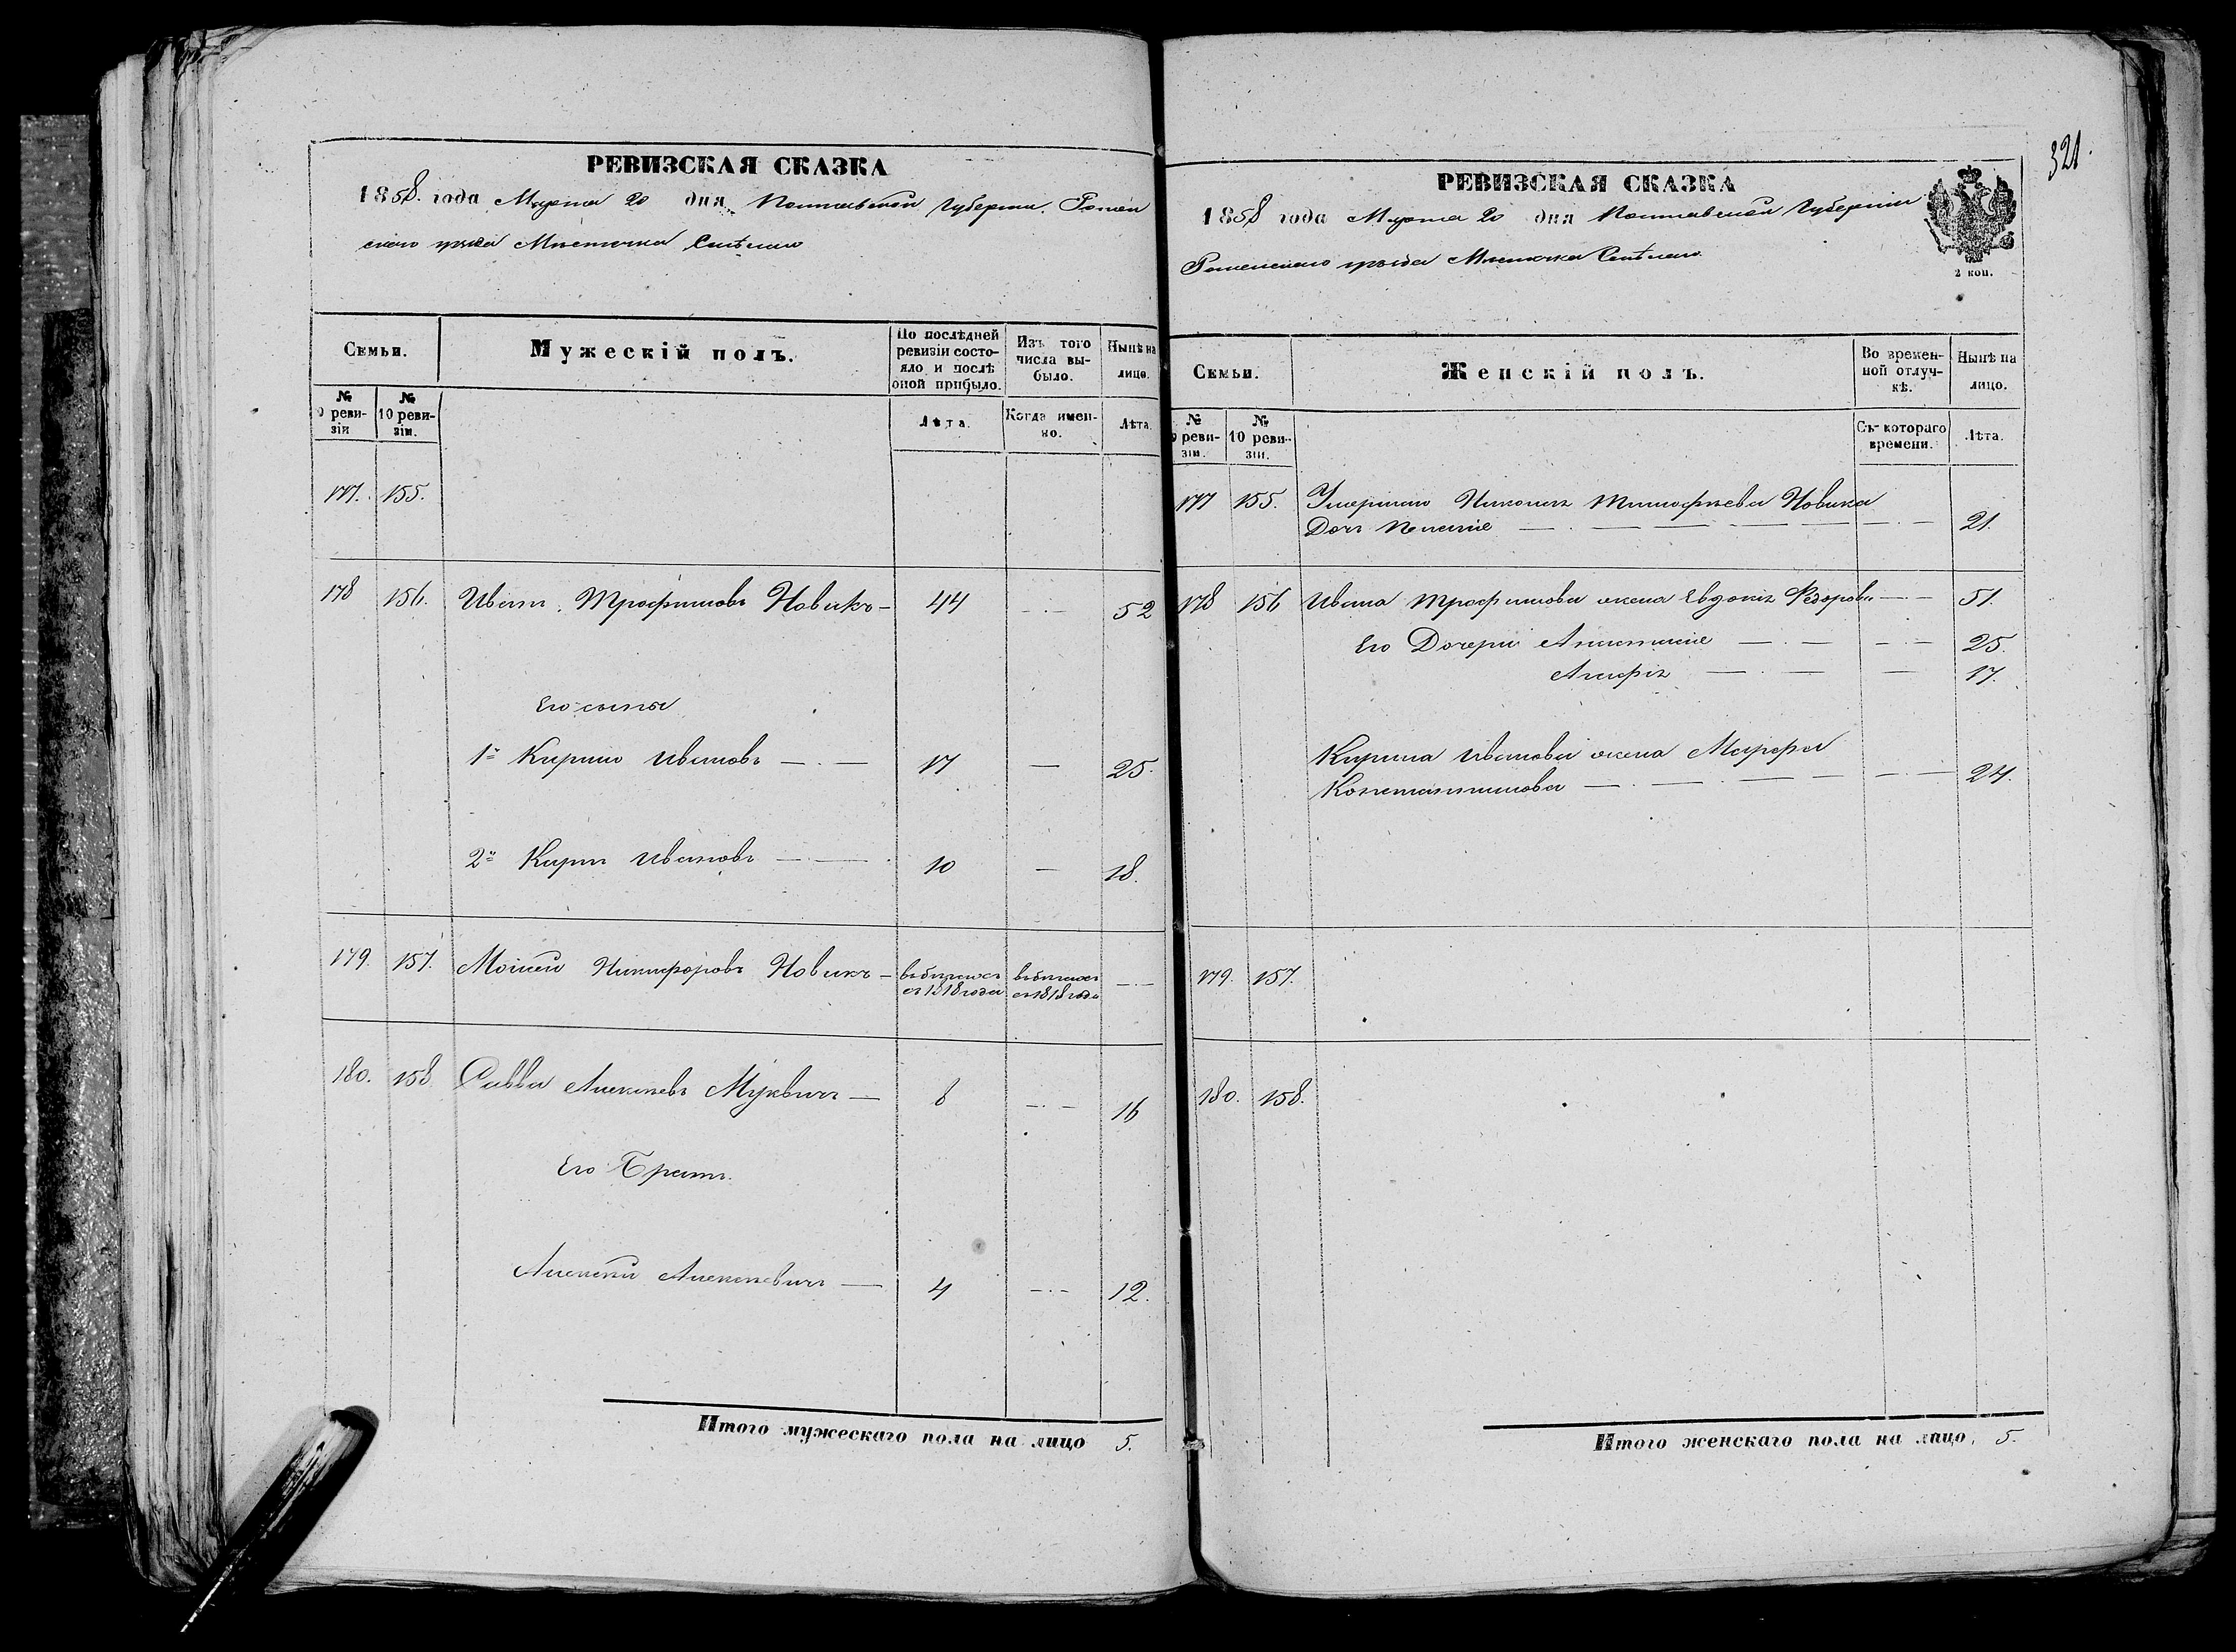 РЕВИЗСКАЯ СКАЗКА
1858. года Марта 20 дня Полтавской Губерніи. Ромен
скаго уѣзда Мѣстечка Смѣлаго
Семьи.
Мужескій полъ.
По послѣдней ревизіи состояло и послѣ оной прибыло.
Изъ того числа выбыло.
Нынѣ на лицо.
№ 9 ревизіи
№ 10 ревизіи.
Лѣта.
Когда именно.
Лѣта.
177. 155.
178 156. Иванъ Трофимовъ Новикъ – 44 — 52
Его сыны
1й Кирило Ивановъ — 17 — 25.
2й Карпъ Ивановъ — 10 — 18.
179. 157. Моисей Никифоровъ Новикъ – въ бѣгахъ съ 1818 года въ бѣгахъ съ 1818 года —
180. 158 Савва Алексѣевъ Муквичъ — 8 — 16
Его Братъ
Алексѣй Алексѣевичъ — 4 — 12.
Итого мужескаго пола на лицо 5.
321.
РЕВИЗСКАЯ СКАЗКА
1858 года Марта 20 дня Полтавской Губерніи
Роменскаго уѣзда Мѣстечка Смѣлаго
2 коп.
Семьи.
Женскій полъ.
Во временной отлучкѣ.
Нынѣ на лицо.
№ 9 ревизіи.
№ 10 ревизіи.
Съ котораго времени.
Лѣта.
177 155. Умершаго Тимофѣева Новика
Дочь — 21.
178 156 Ивана Трофимова жена Евдокія Федорова — 51.
Его Дочери Анастасія — 25.
— 17.
Кирила Иванова жена Марфа
Константинова — 24.
179. 157.
180. 158.
Итого женскаго пола на лицо, 5.